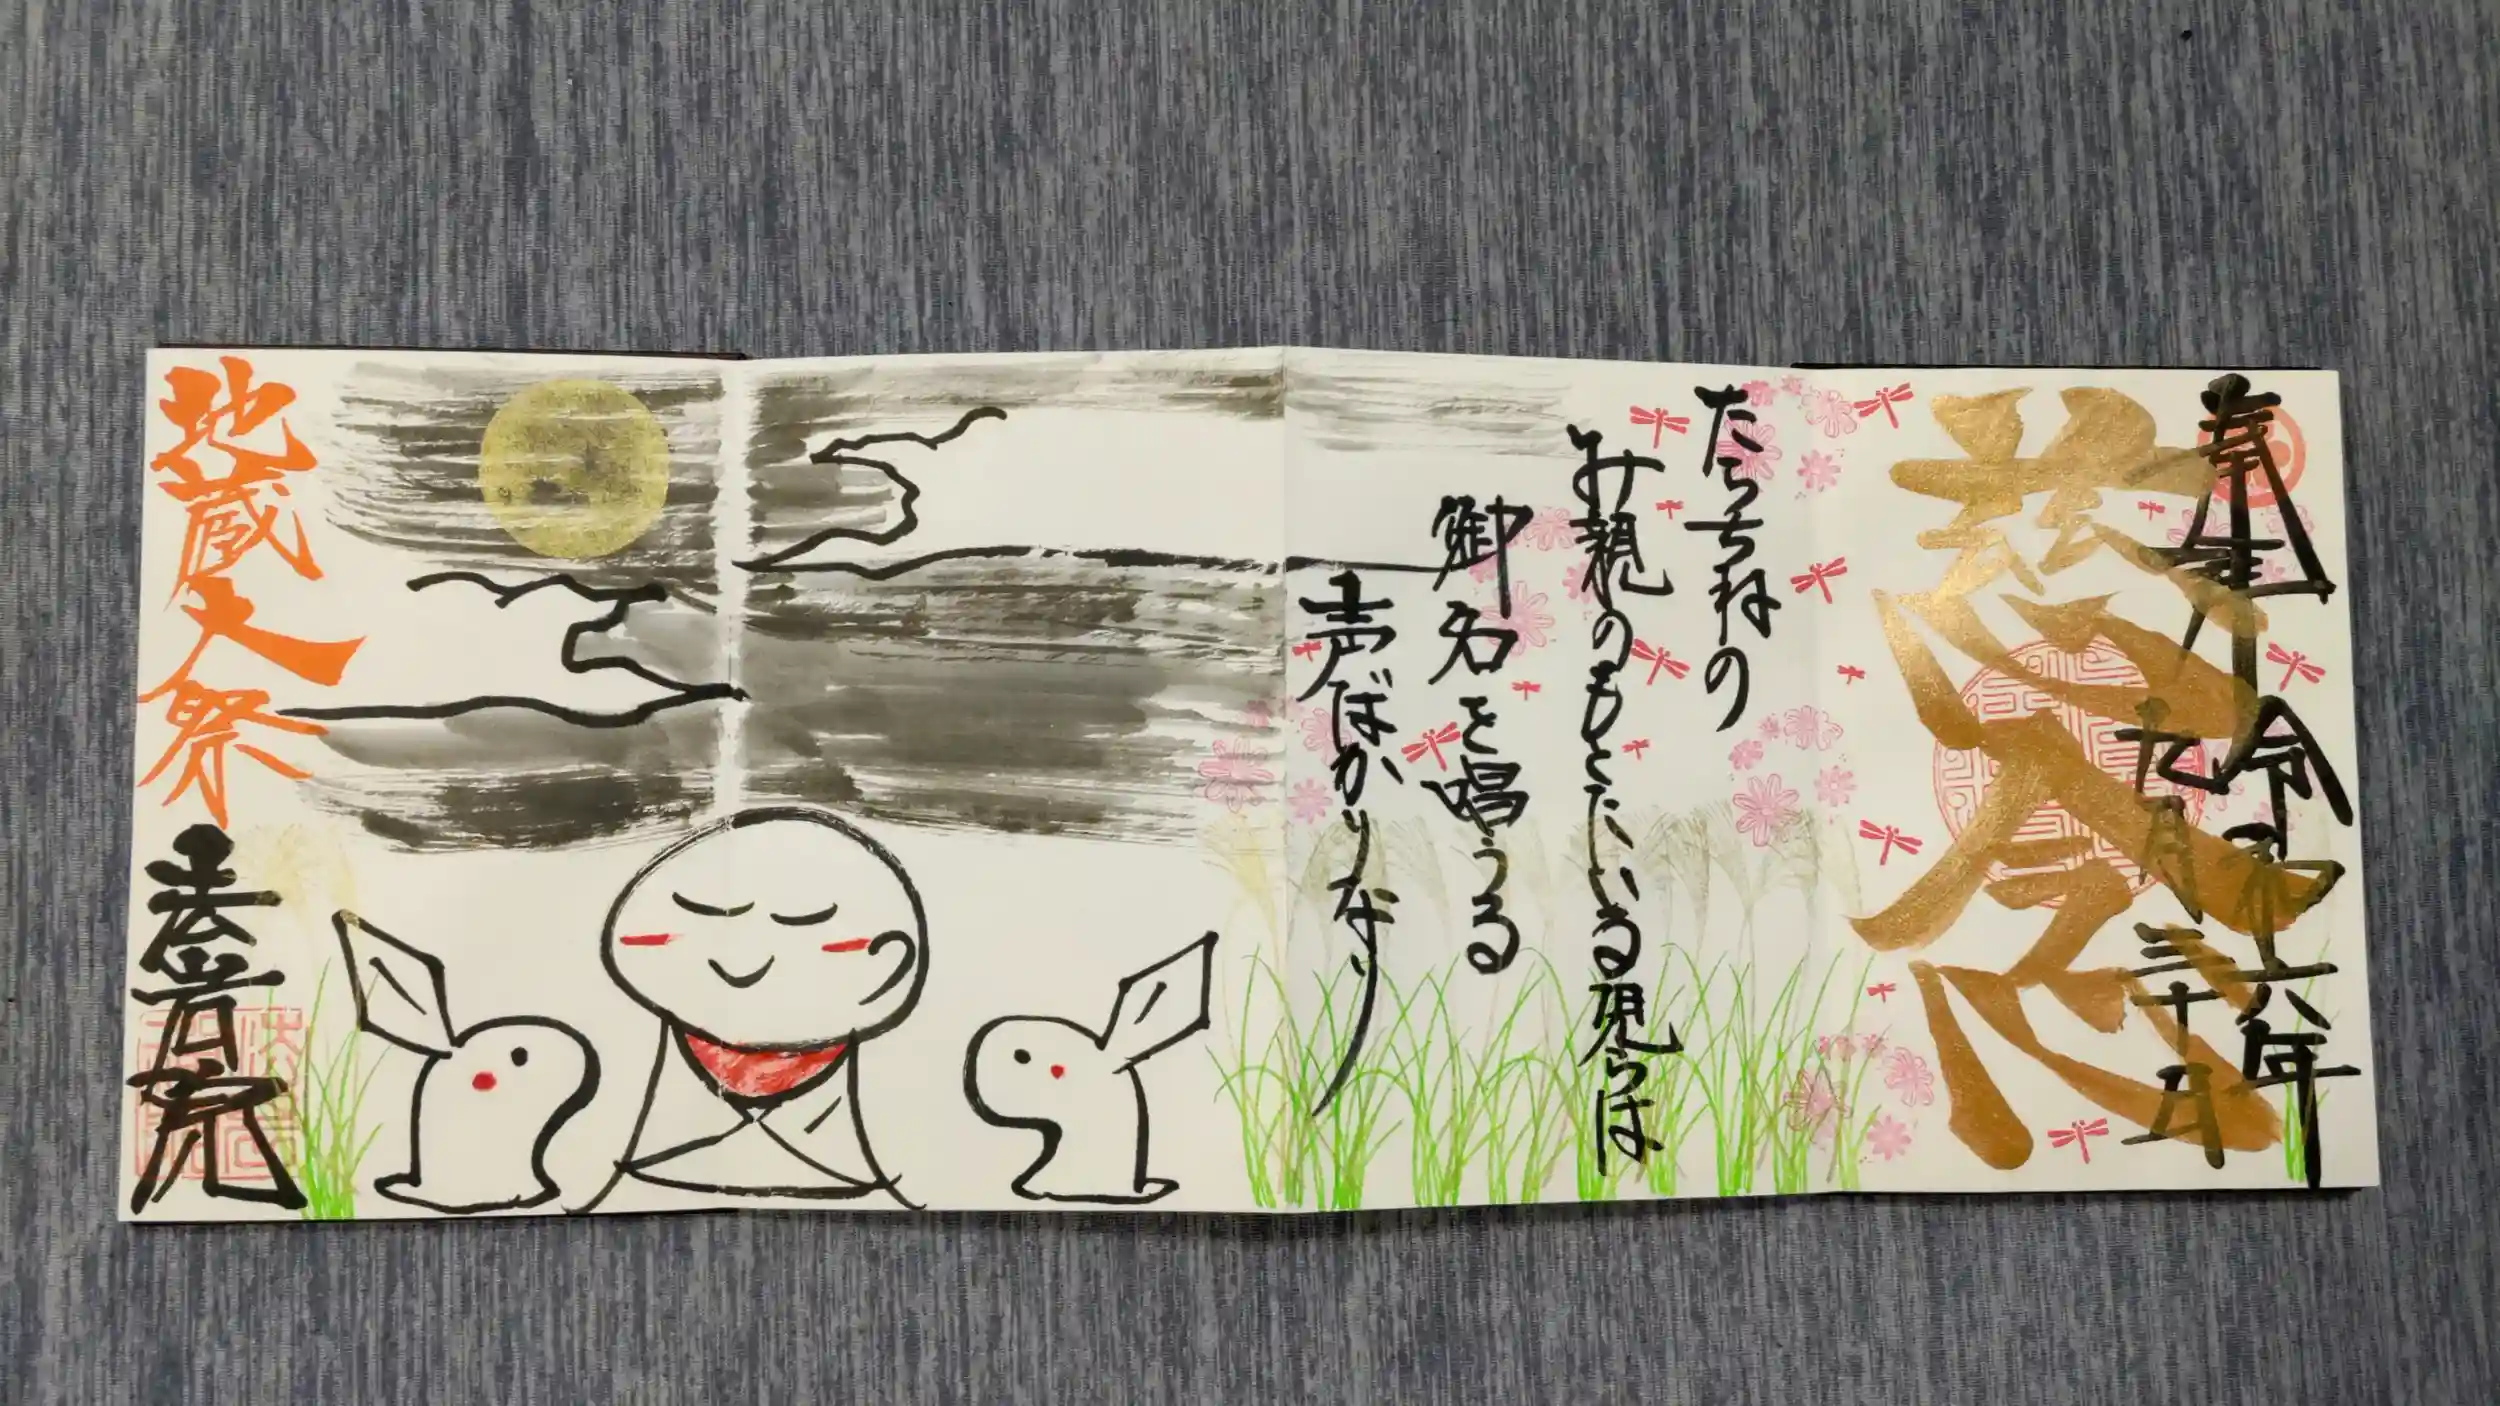 奉拝 令和六年
九月三十日
慈念
たらちねの
み親のもとにいる児らは
御名を唱うる
声ばかりなり
地蔵大祭
法音院